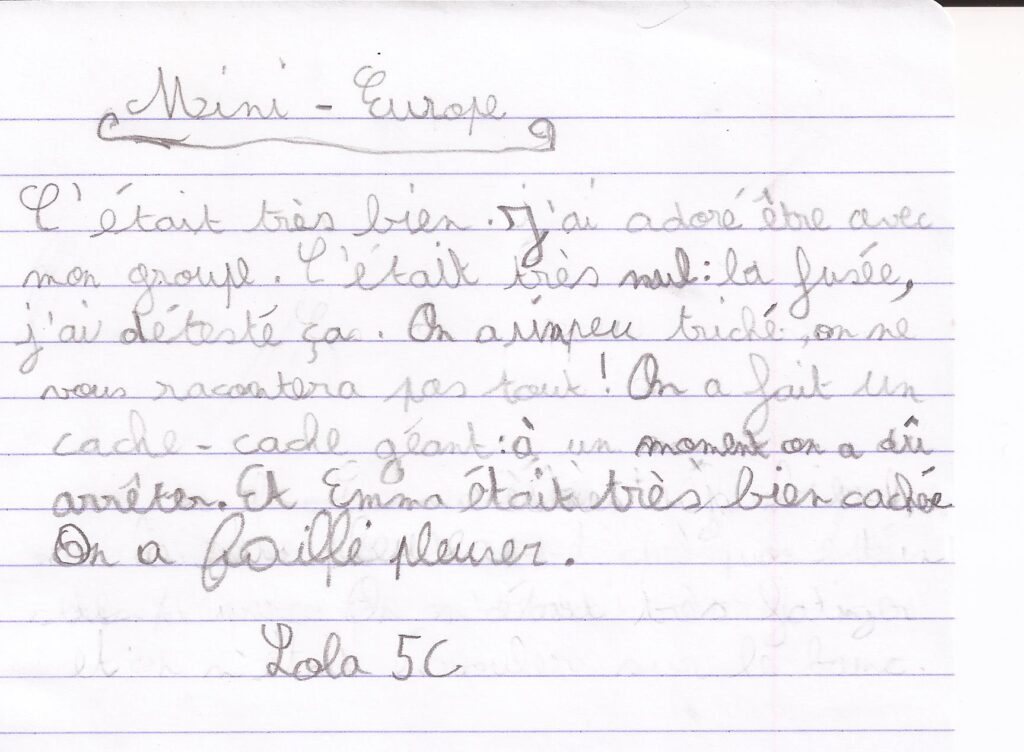 Mini - Europe
C'était très bien. j'ai adoré être avec
mon groupe. C'était très nul: la fusée,
j'ai détesté ça. On a unpeu triché, on ne
vous racontera pas tout! On a fait un
cache-cache géant: à un moment on a dû
arrêter. Et Emma était très bien cachée
On a faillé pleurer.
Lola 5C